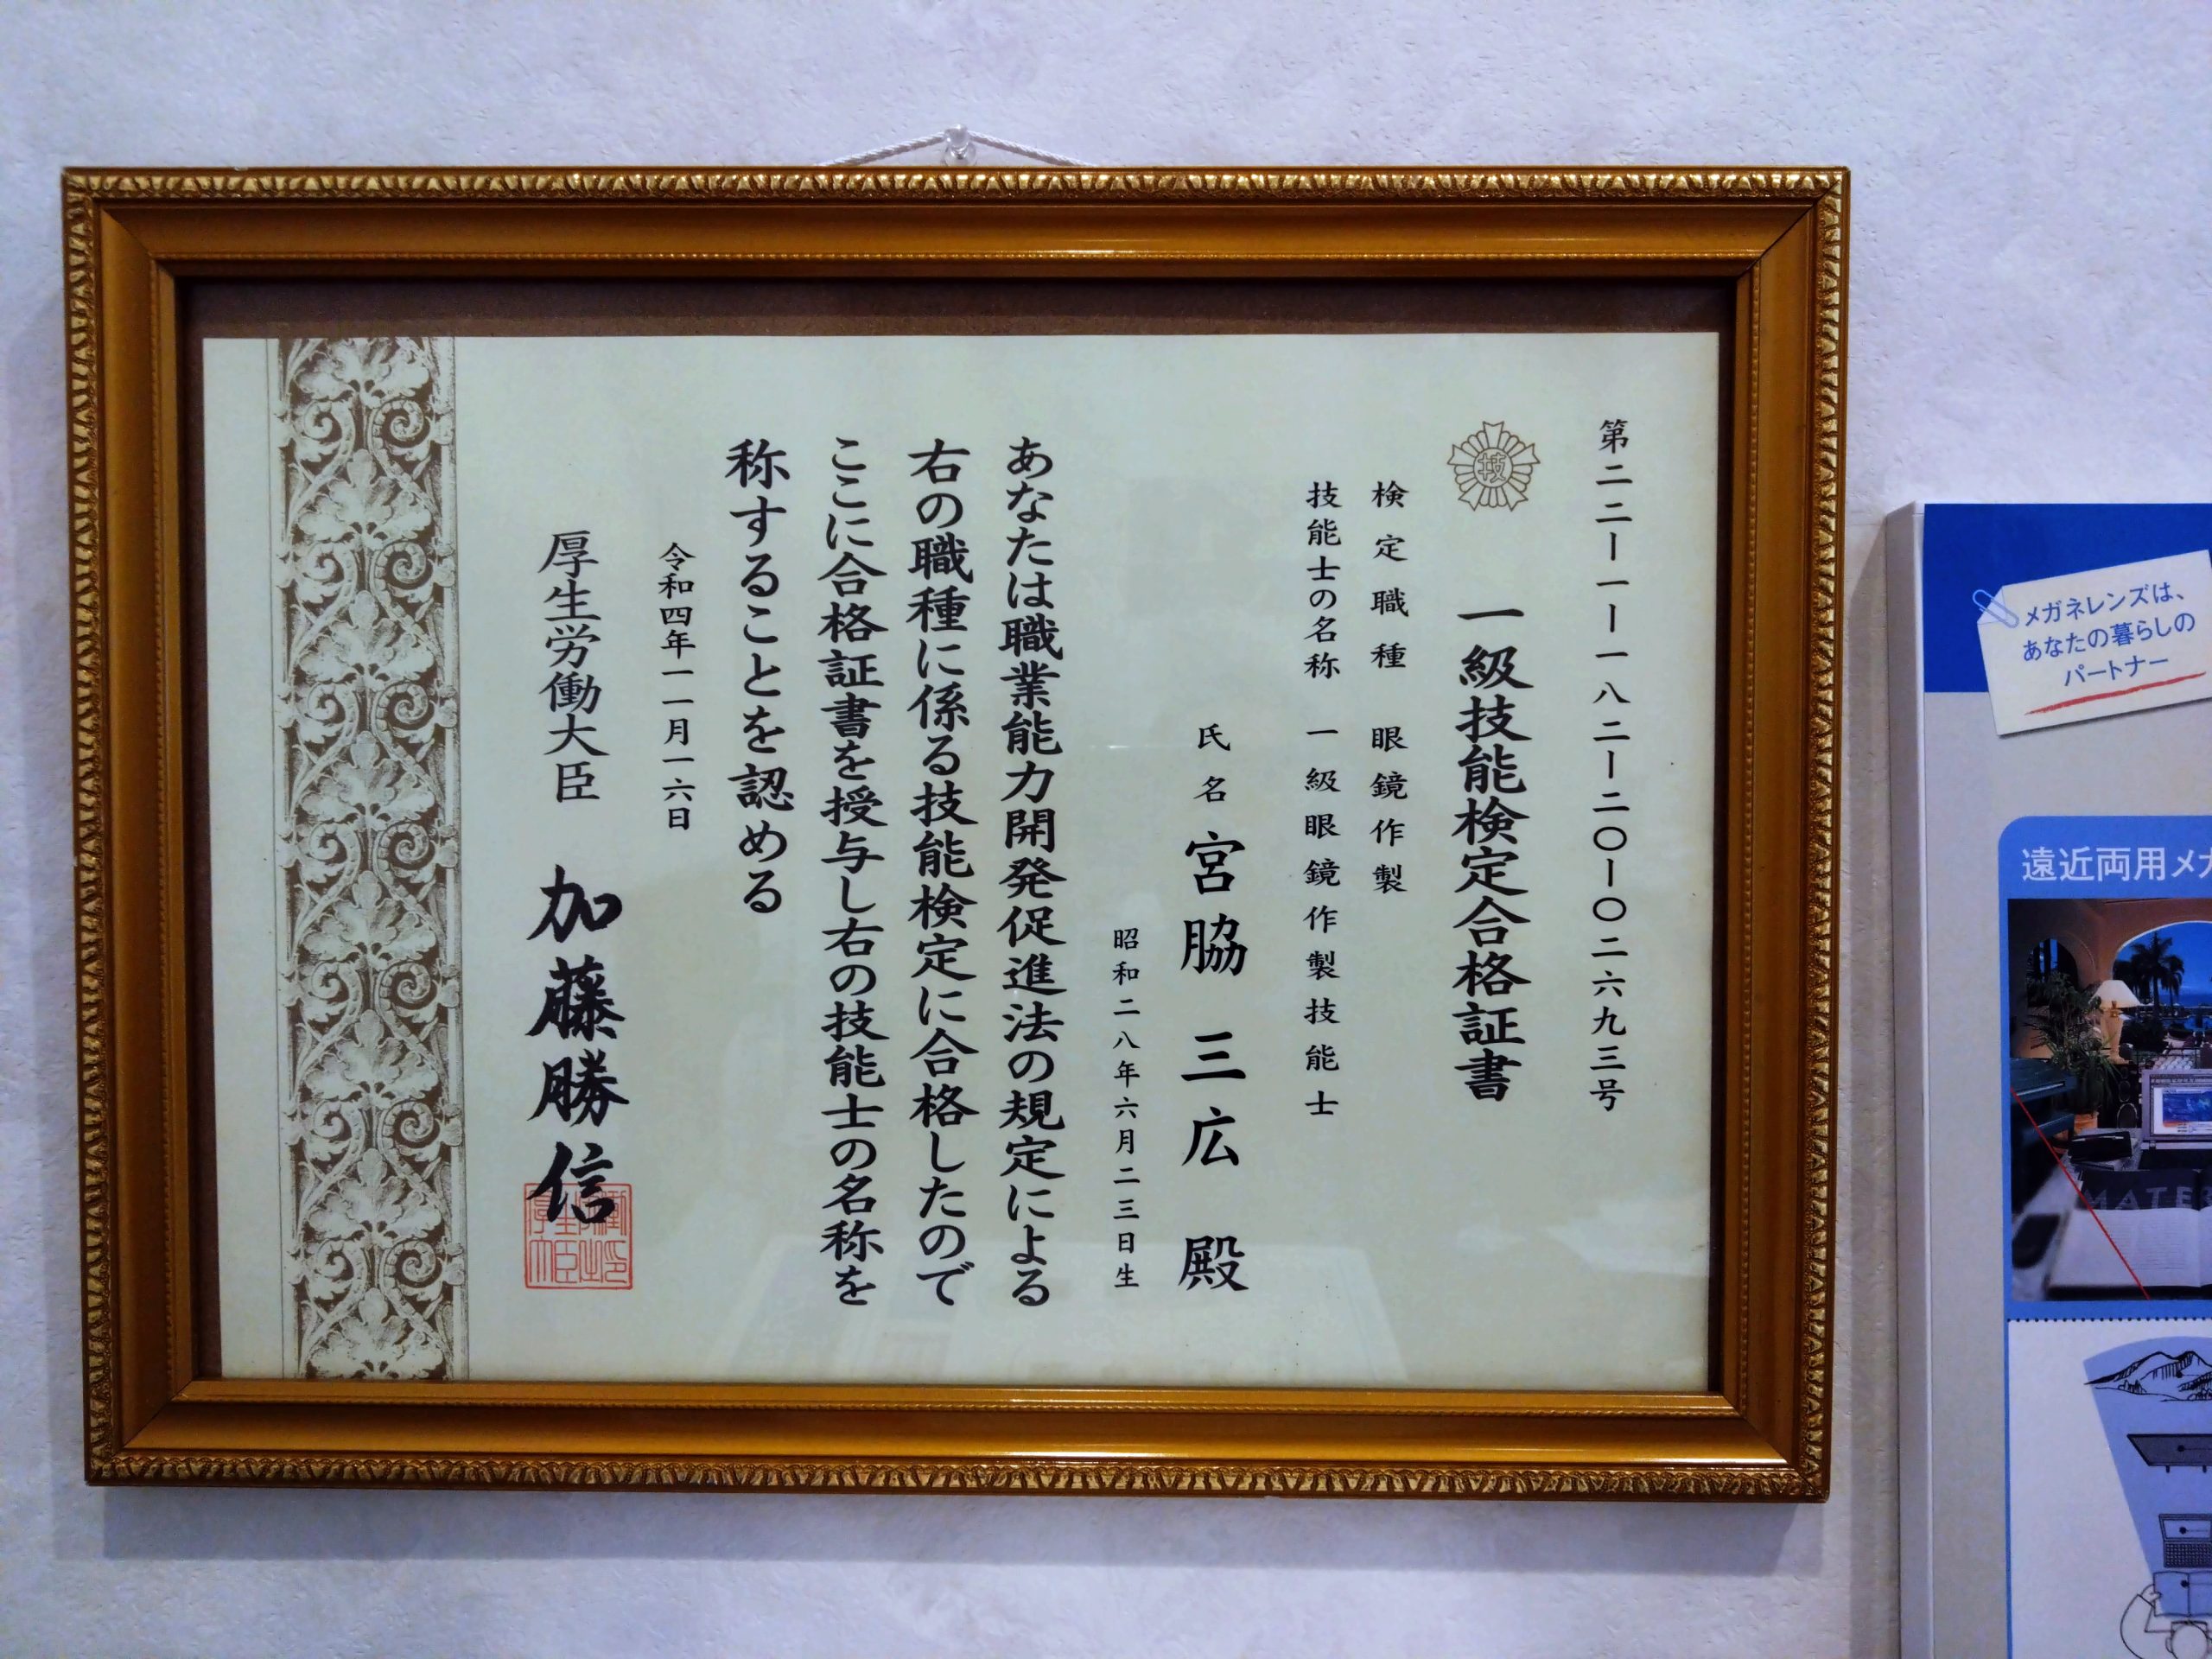 第二二ー一ー一八二ー二〇ー〇二六九三号
技
一級技能検定合格証書
検定職種 眼鏡作製
技能士の名称 一級眼鏡作製技能士
氏名 宮脇 三広 殿
昭和二八年六月二三日生
あなたは職業能力開発促進法の規定による
右の職種に係る技能検定に合格したので
ここに合格証書を授与し右の技能士の名称を
称することを認める
令和四年一一月一六日
厚生労働大臣 加藤勝信
メガネレンズは、
あなたの暮らしの
パートナー
遠近両用メガ
MATES